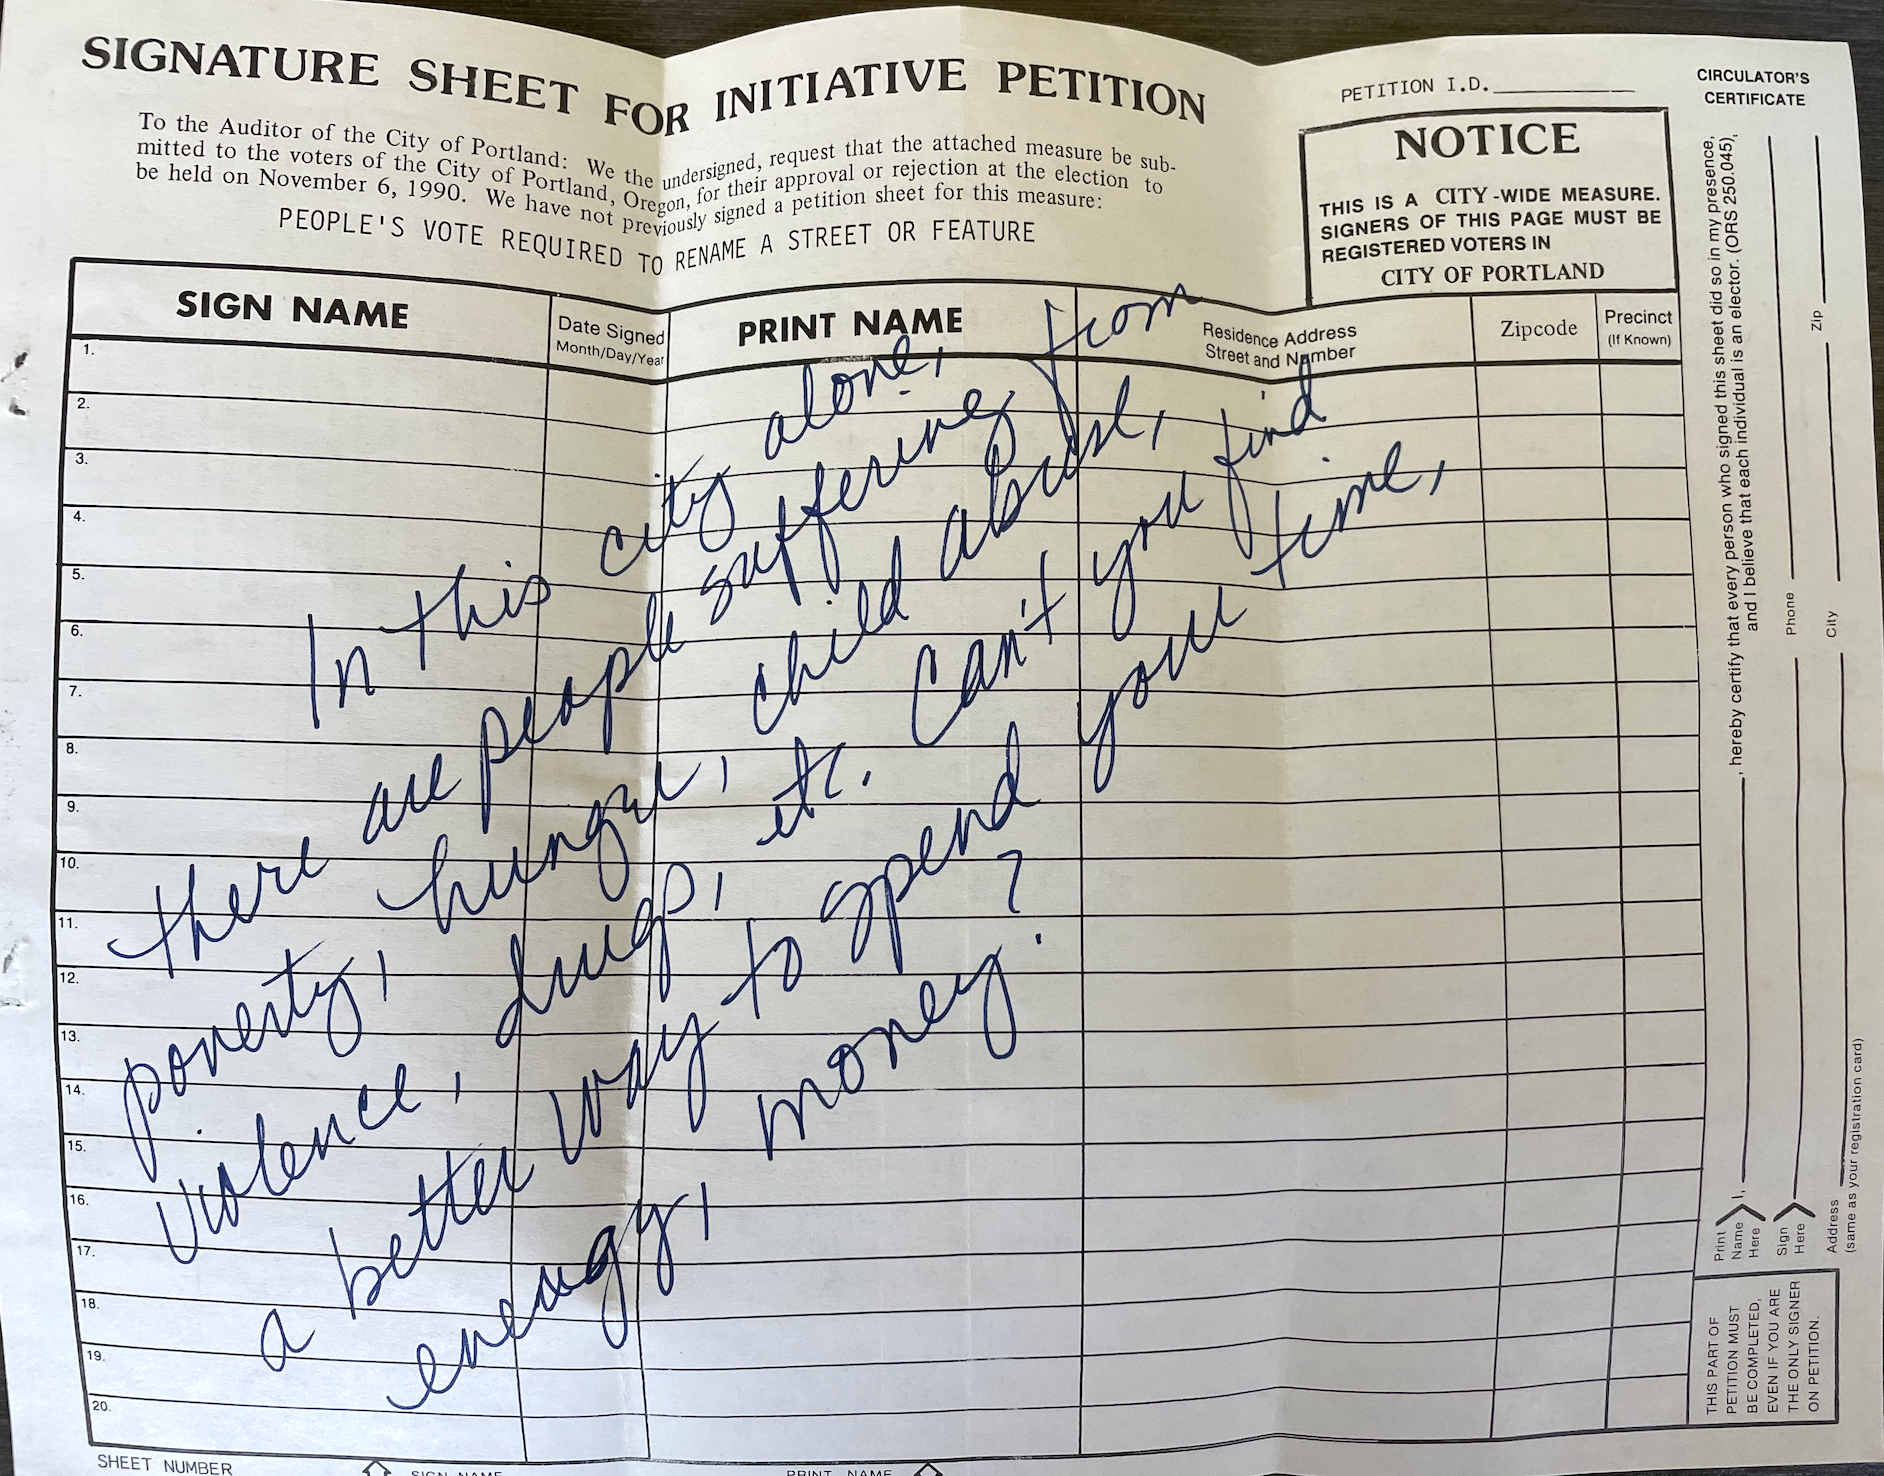 SIGNATURE SHEET FOR INITIATIVE PETITION
To the Auditor of the City of Portland: We the undersigned, request that the attached measure be sub-
mitted to the voters of the City of Portland, Oregon, for their approval or rejection at the election to
be held on November 6, 1990. We have not previously signed a petition sheet for this measure:
PEOPLE'S VOTE REQUIRED TO RENAME A STREET OR FEATURE
PETITION I.D.
NOTICE
THIS IS A CITY-WIDE MEASURE.
SIGNERS OF THIS PAGE MUST BE
REGISTERED VOTERS IN
CITY OF PORTLAND
SIGN NAME
Date Signed
Month/Day/Year
PRINT NAME
Residence Address
Street and Number
Zipcode
Precinct
(If Known)
1.
2.
3.
4.
5.
6.
7.
8.
9.
10.
11.
12.
13.
14.
15.
16.
17.
18.
19.
20.
In this city alone,
there are people suffering from
poverty, hunger, child abuse,
violence, drugs, etc. Can't you find
a better way to spend your time,
energy, money?
CIRCULATOR'S
CERTIFICATE
Print
Name
Here
I,
, hereby certify that every person who signed this sheet did so in my presence,
and I believe that each individual is an elector. (ORS 250.045),
Sign
Here
Phone
Address
City
Zip
(same as your registration card)
THIS PART OF
PETITION MUST
BE COMPLETED,
EVEN IF YOU ARE
THE ONLY SIGNER
ON PETITION.
SHEET NUMBER
SIGN NAME
PRINT NAME